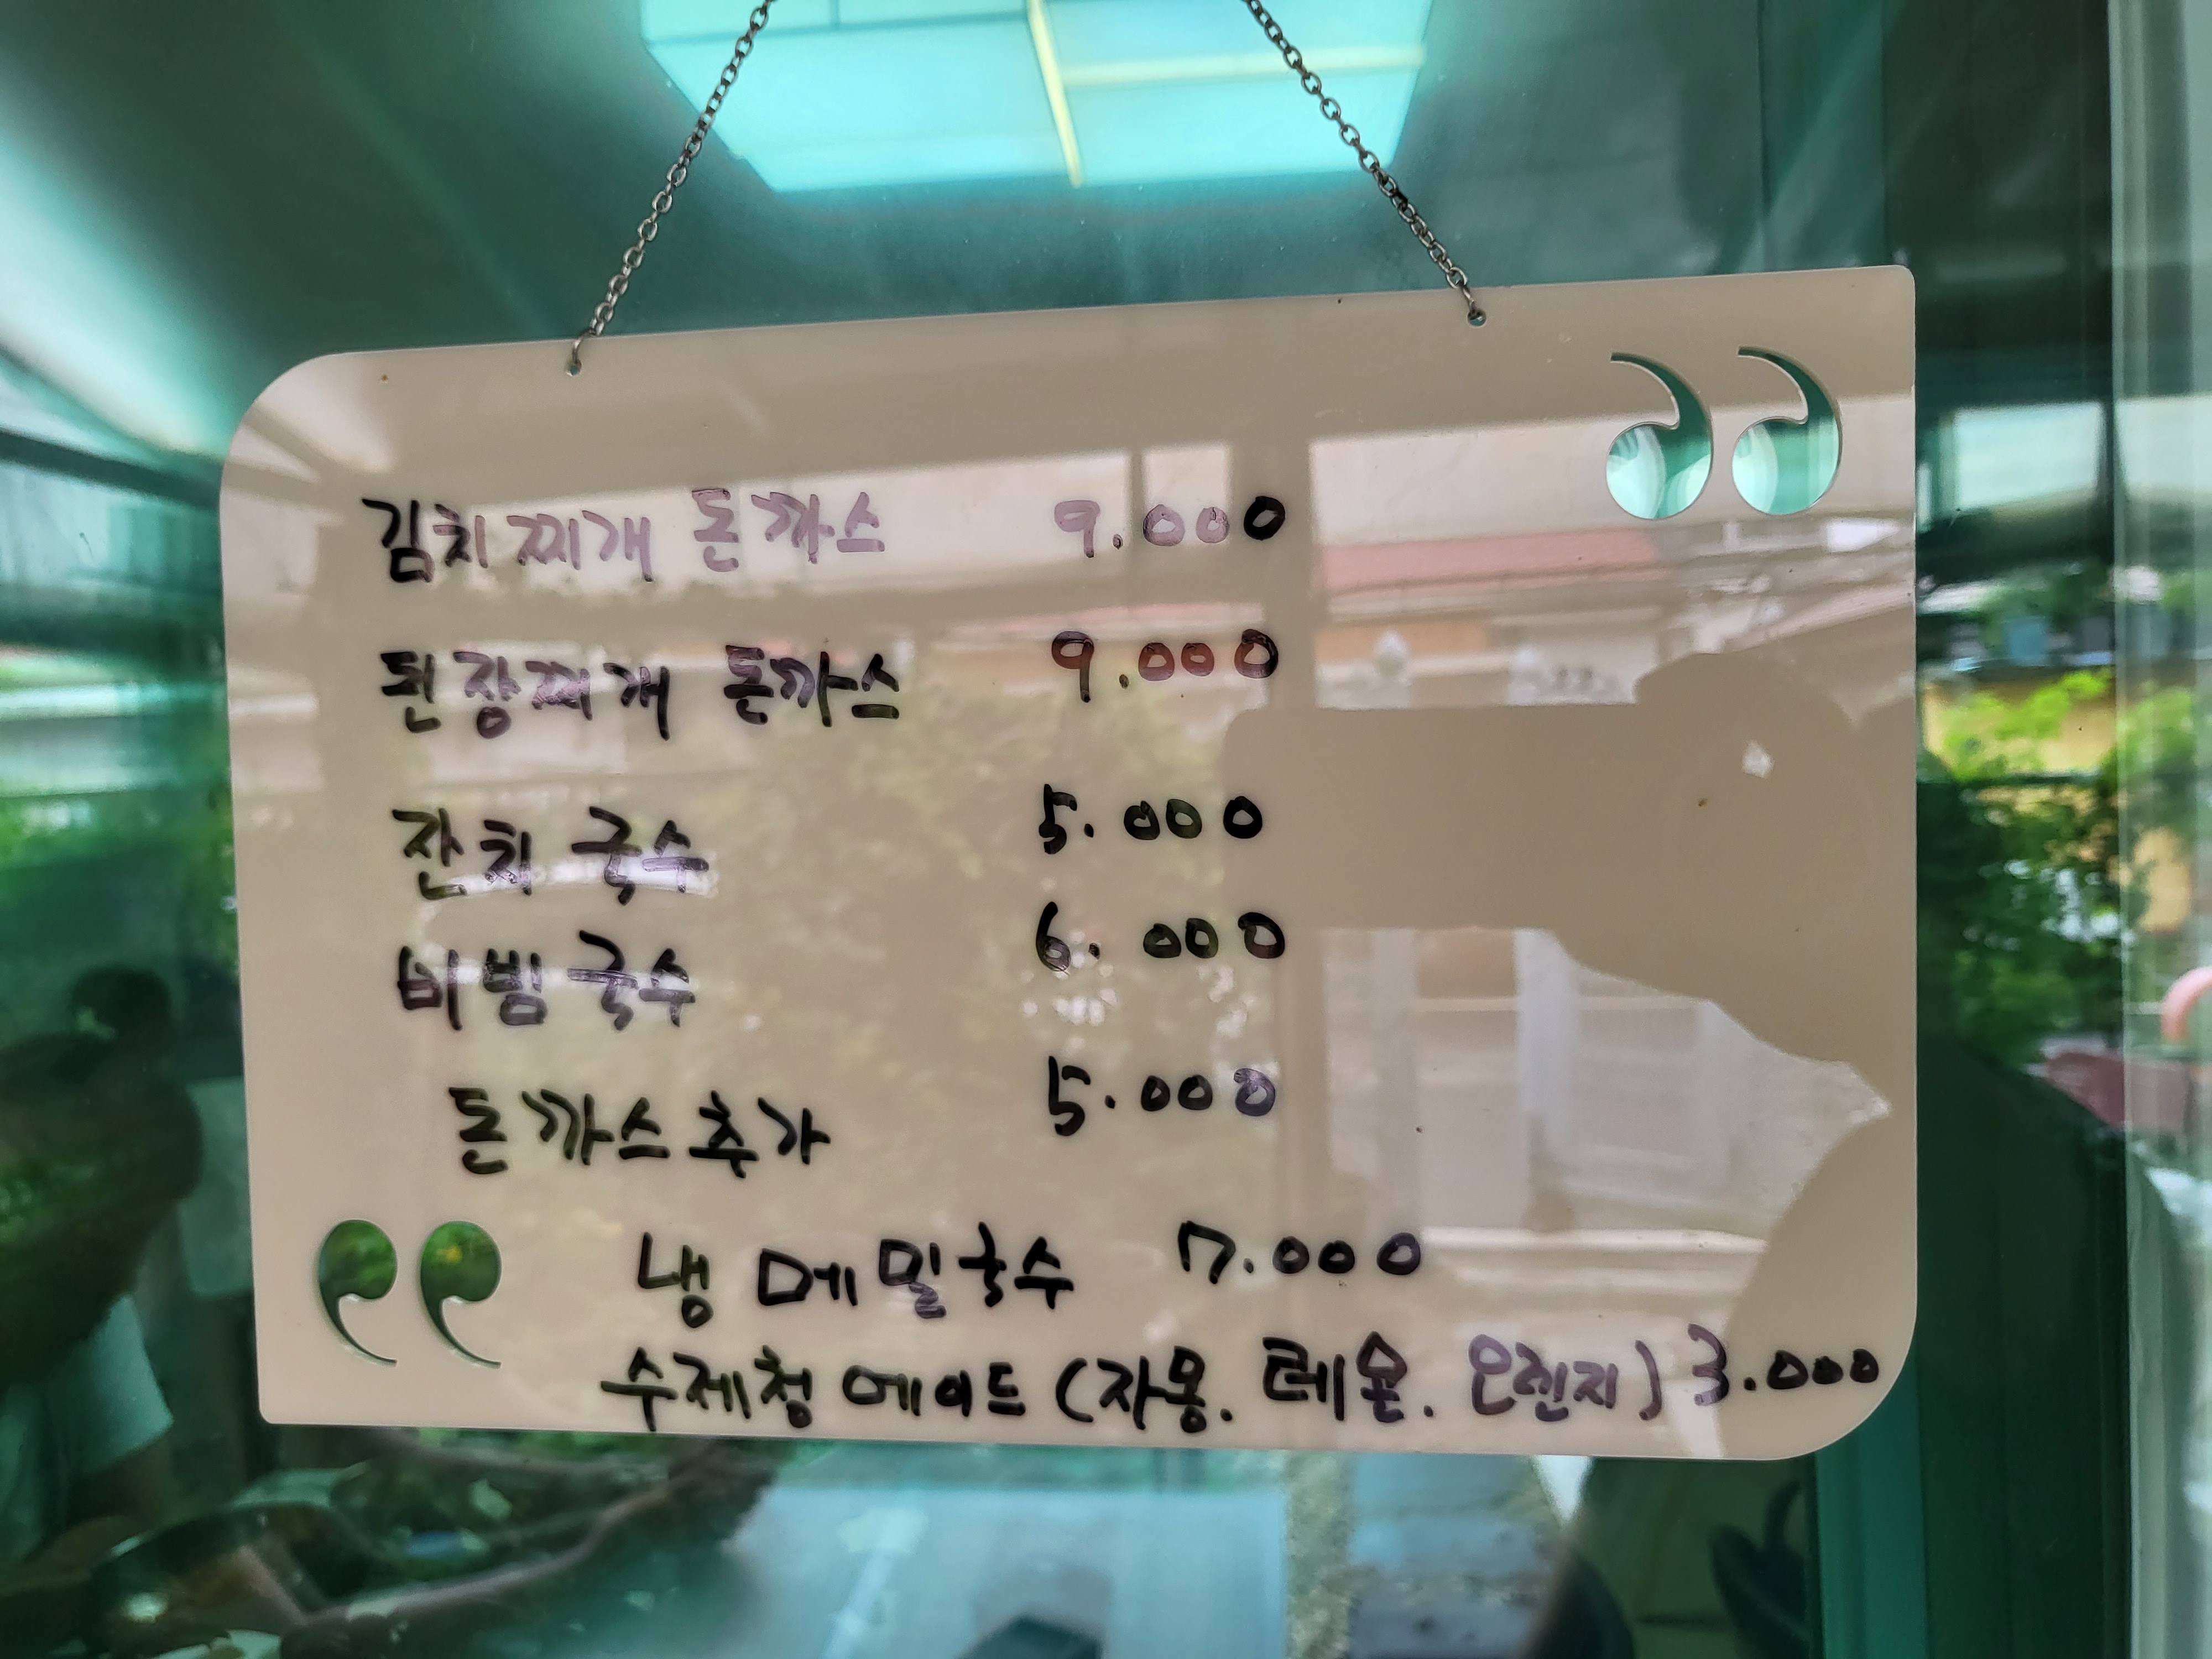 김치찌개 돈까스 9.000
된장찌개 돈까스 9.000
잔치국수 5.000
비빔국수 6.000
돈까스추가 5.000
냉메밀국수 7.000
수제청에이드 (자몽. 레몬. 오렌지) 3.000